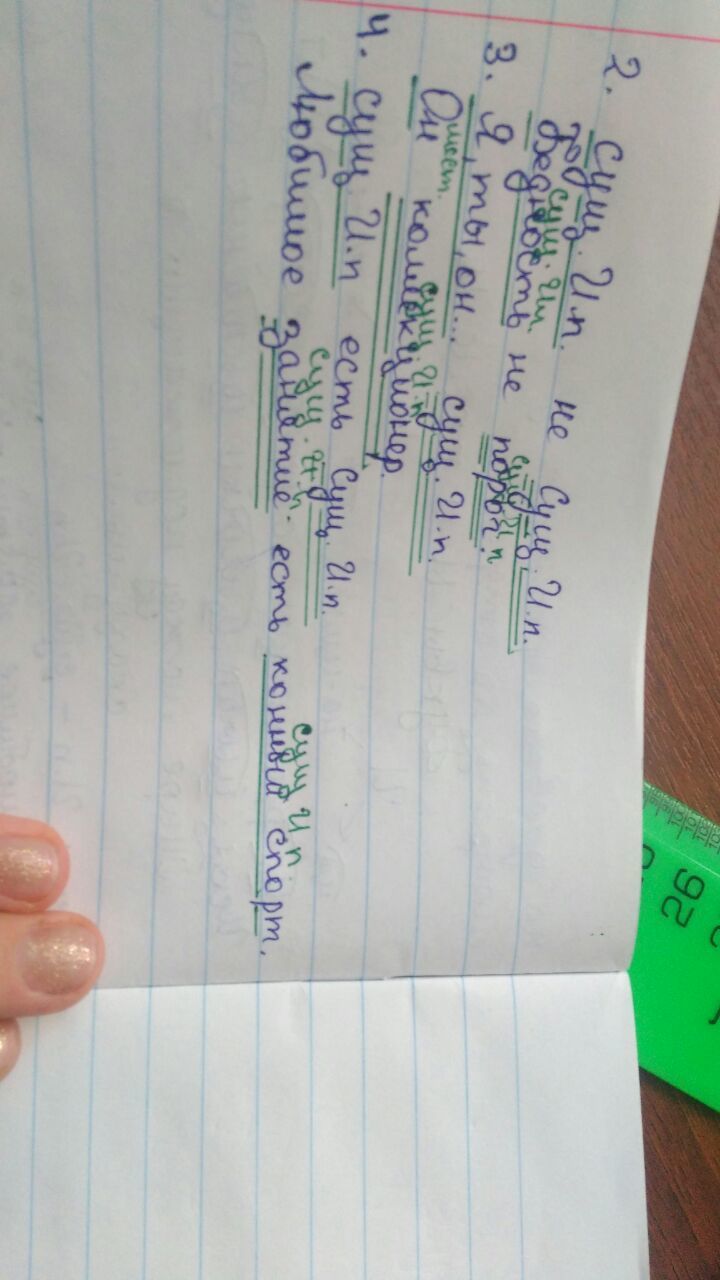 2. сущ. И.п. не сущ. И.п.
сущ. И.п. сущ. И.п
Бедность не порок.
3. Я, ты, он... сущ. И.п.
мест. сущ. И.п
Он коллекционер.
4. сущ. И.п есть сущ. И.п.
сущ. И.п.
Любимое занятие есть конный спорт.
сущ И п.
26